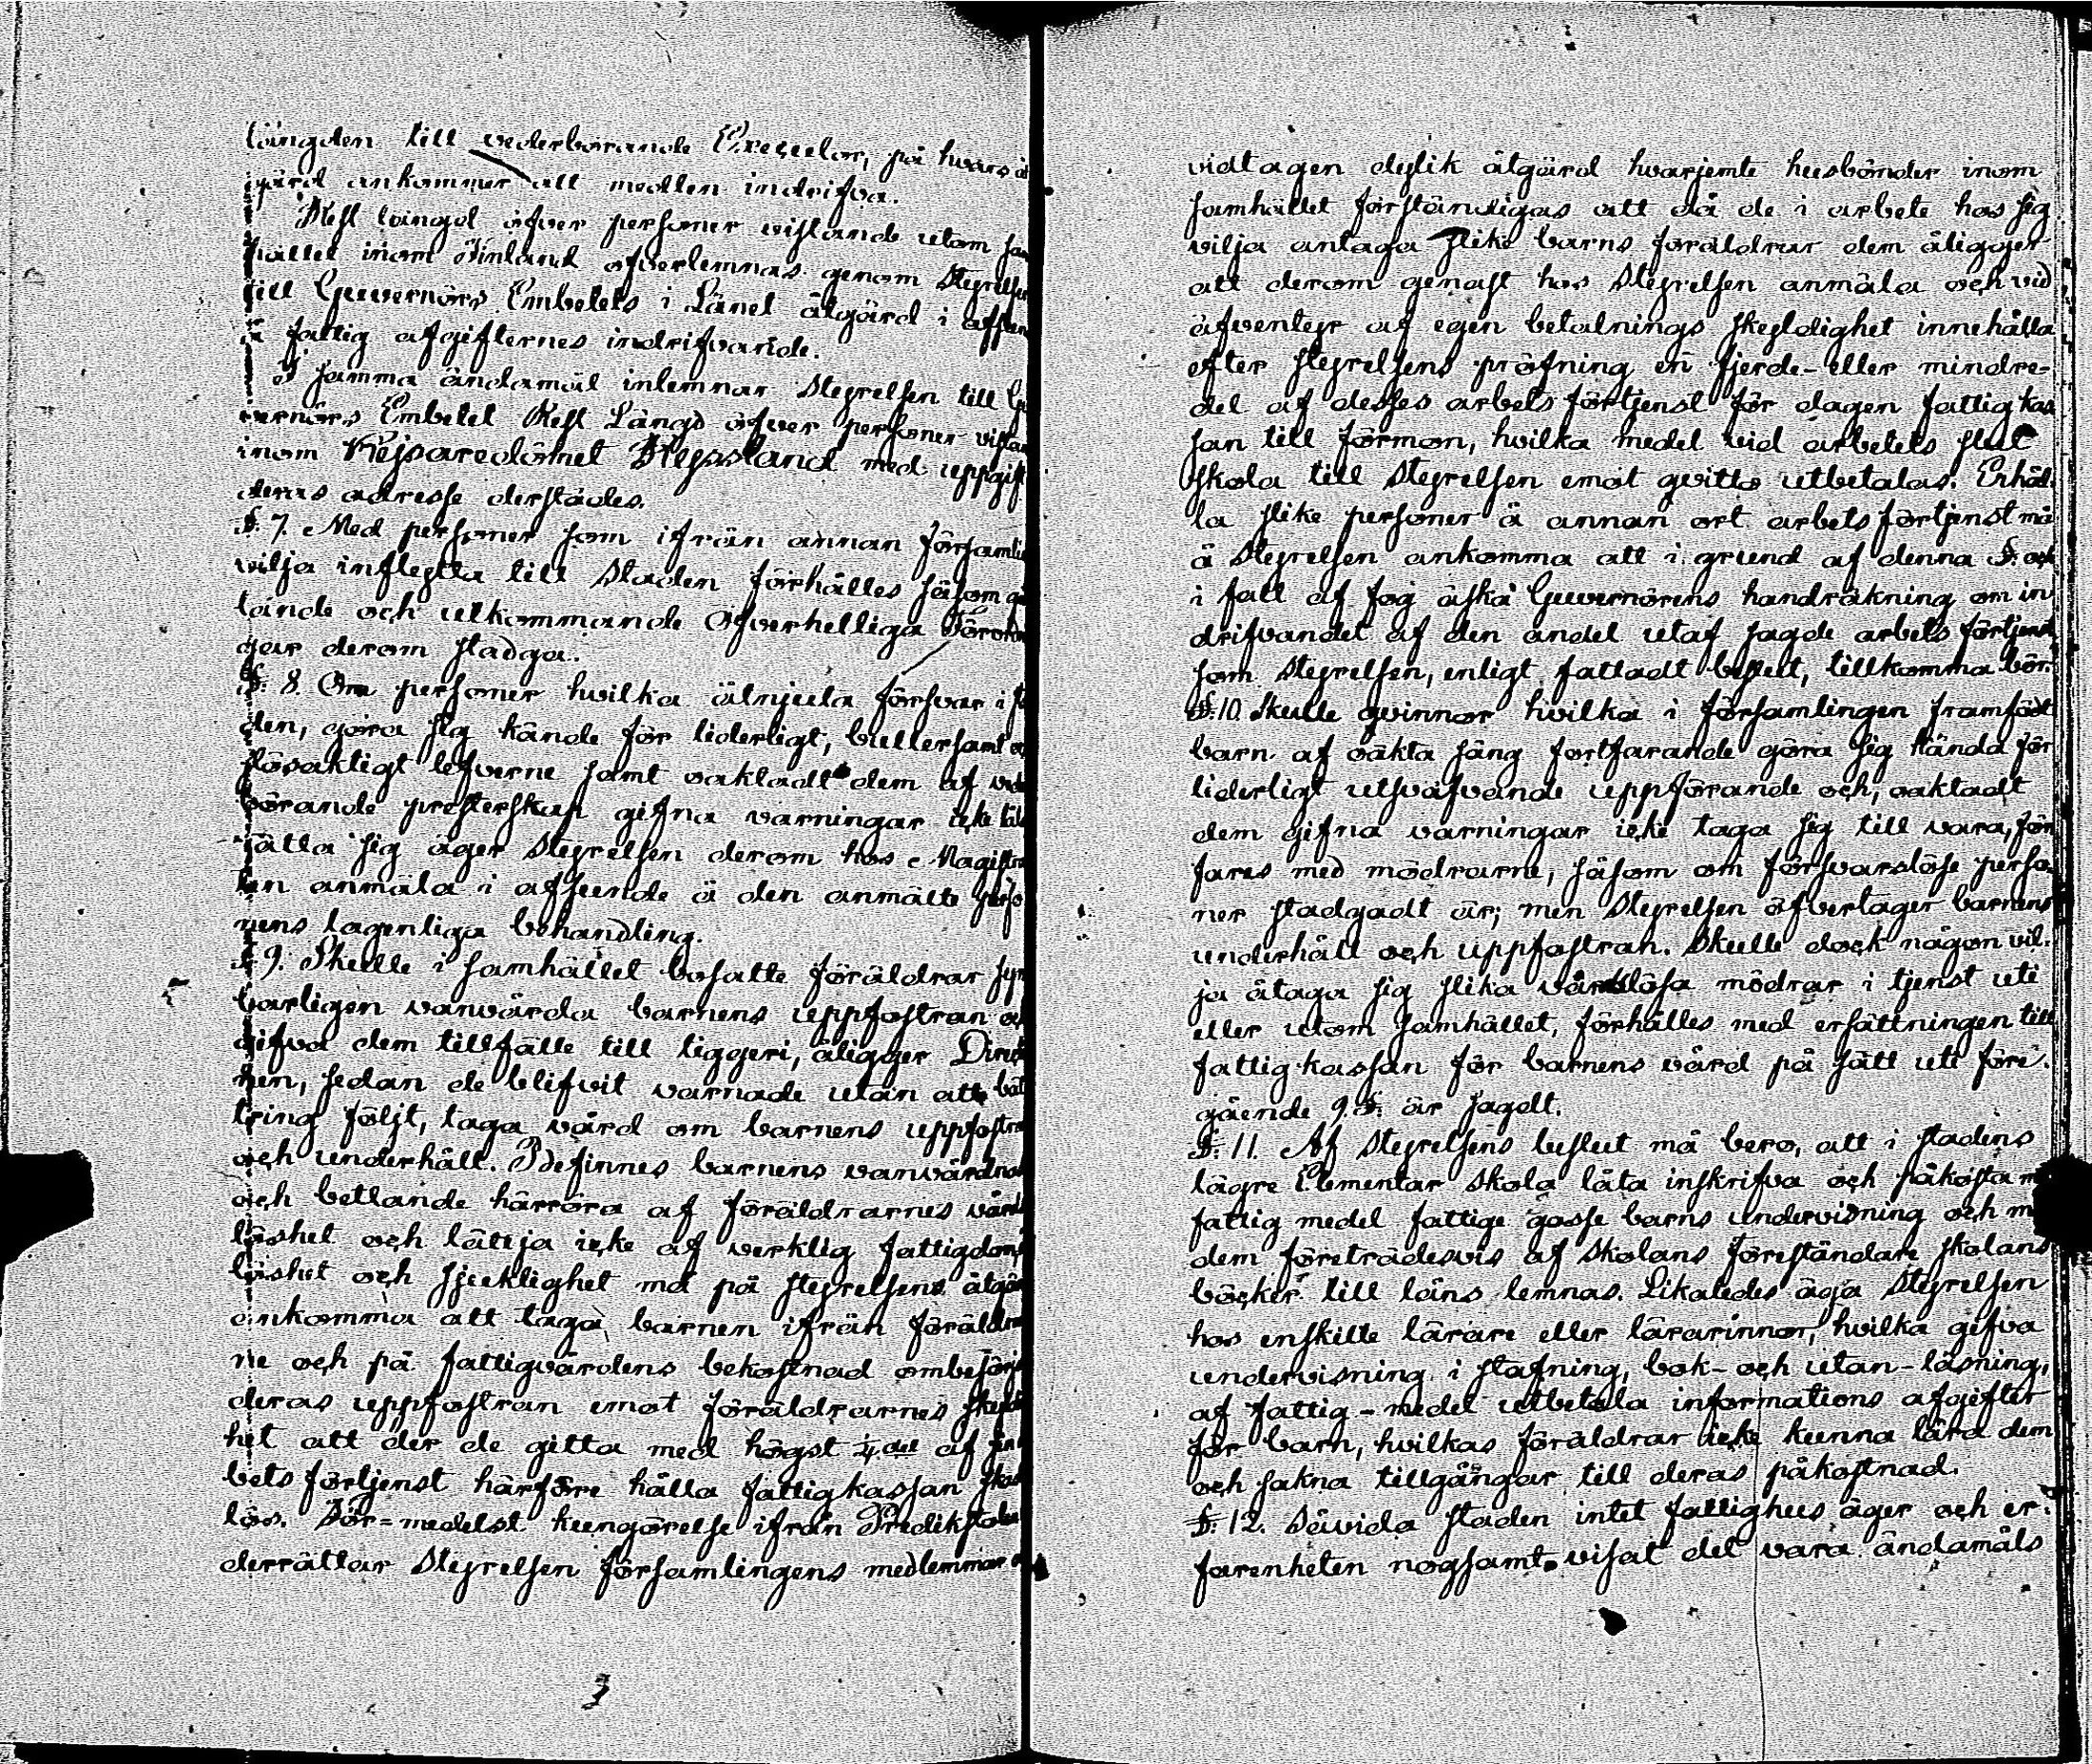 längden till vederbörande Executor, på hvars å
gärd ankommer att medlen indrifva.
Rest längd öfver personer vistande utom sam
hället inom Finland öfverlemnas genom Styrelsen
till Guvernörs Embetets i Länet åtgärd i afseen
å fattig afgifternes indrifvande.
I samma ändamål inlemnar Styrelsen till Gu
vernörs Embetet Rest Längd öfver personer vistan
inom Kejsaredömet Ryssland med uppgift
deras adresse derstädes.
§. 7. Med personer som ifrån annan församlin
vilja inflytta till Staden förhålles såsom gä
lande och utkommande Öfverhetliga Förordn
gar derom stadga.
§. 8. Om personer hvilka åtnjuta försvar i sta
den, göra sig kände för liderligt, bullersamt oc
lösaktigt lefverne samt oaktadt dem af ved
börande presterskap gifna varningar icke låta
rätta sig äger Styrelsen derom hos Magistra
ten anmäla i afseende å den anmälte perso
nens lagenliga behandling.
§ 9. Skulle i samhället bosatte föräldrar syn
barligen vanvårda barnens uppfostran oc
gifva dem tillfälle till tiggeri, åligger Direkt
nen, sedan de blifvit varnade utan att bät
tring följt, taga vård om barnens uppfostra
och underhåll. Befinnes barnens vanvårdna
och bettlande härröra af föräldrarnes vårds
löshet och lättja icke af verklig fattigdom,
löshet och sjuklighet må på styrelsens åtgär
ankomma att taga barnen ifrån föräldra
ne och på fattigvårdens bekostnad ombesörja
deras uppfostran emot föräldrarnes skyldi
het att der de gitta med högst ¼ del af sin
bets förtjenst härföre hålla fattigkassan skad
lös. Der-medelst kungörelse ifrån Predikstolen
derrättar Styrelsen församlingens medlemmar o
3
vidtagen dylik åtgärd hvarjemte husbönder inom
samhället förständigas att då de i arbete hos sig
vilja antaga slike barns föräldrar dem åligger
att derom genast hos Styrelsen anmäla och vid
äfventyr af egen betalnings skyldighet innehålla
efter styrelsens pröfning en fjerde- eller mindre-
del af desses arbets förtjenst för dagen fattigkas
san till förmon, hvilka medel vid arbetets slut
skola till Styrelsen emot qvitto utbetalas. Erhål-
la slike personer å annan ort arbets förtjenst må
å Styrelsen ankomma att i grund af denna §. och
i fall af fog äska Guvernörens handräkning om in
drifvandet af den andel utaf sagde arbets förtjenst
som Styrelsen, enligt fattadt beslut, tillkomma bör.
§. 10. Skulle qvinnor hvilka i församlingen framfödt
barn af oäkta säng fortfarande göra sig kända för
liderligt utsväfvande uppförande och, oaktadt
dem gifna varningar icke taga sig till vara, för
fares med mödrarne, såsom om försvarslöse perso-
ner stadgadt är; men Styrelsen öfvertager barnens
underhåll och uppfostran. Skulle dock någon vil-
ja åtaga sig slika vårdslösa mödrar i tjenst uti
eller utom samhället, förhålles med ersättningen till
fattig-kassan för barnens vård på sätt uti före-
gående 9. §. är sagdt.
§. 11. Af Styrelsens beslut må bero, att i stadens
lägre Elementar Skola låta inskrifva och påkosta m
fattig medel fattige gosse barns undervisning och m
dem företrädesvis af Skolans föreståndare skolans
böcker till låns lemnas. Likaledes äga Styrelsen
hos enskilte lärare eller lärarinnor, hvilka gifva
undervisning i stafning, bok- och utan-läsning,
af fattig-medel utbetala informations afgifter
för barn, hvilkas föräldrar icke kunna lära dem
och sakna tillgångar till deras påkostnad.
§. 12. Såvida staden intet fattighus äger och er-
farenheten nogsamt visat det vara ändamåls